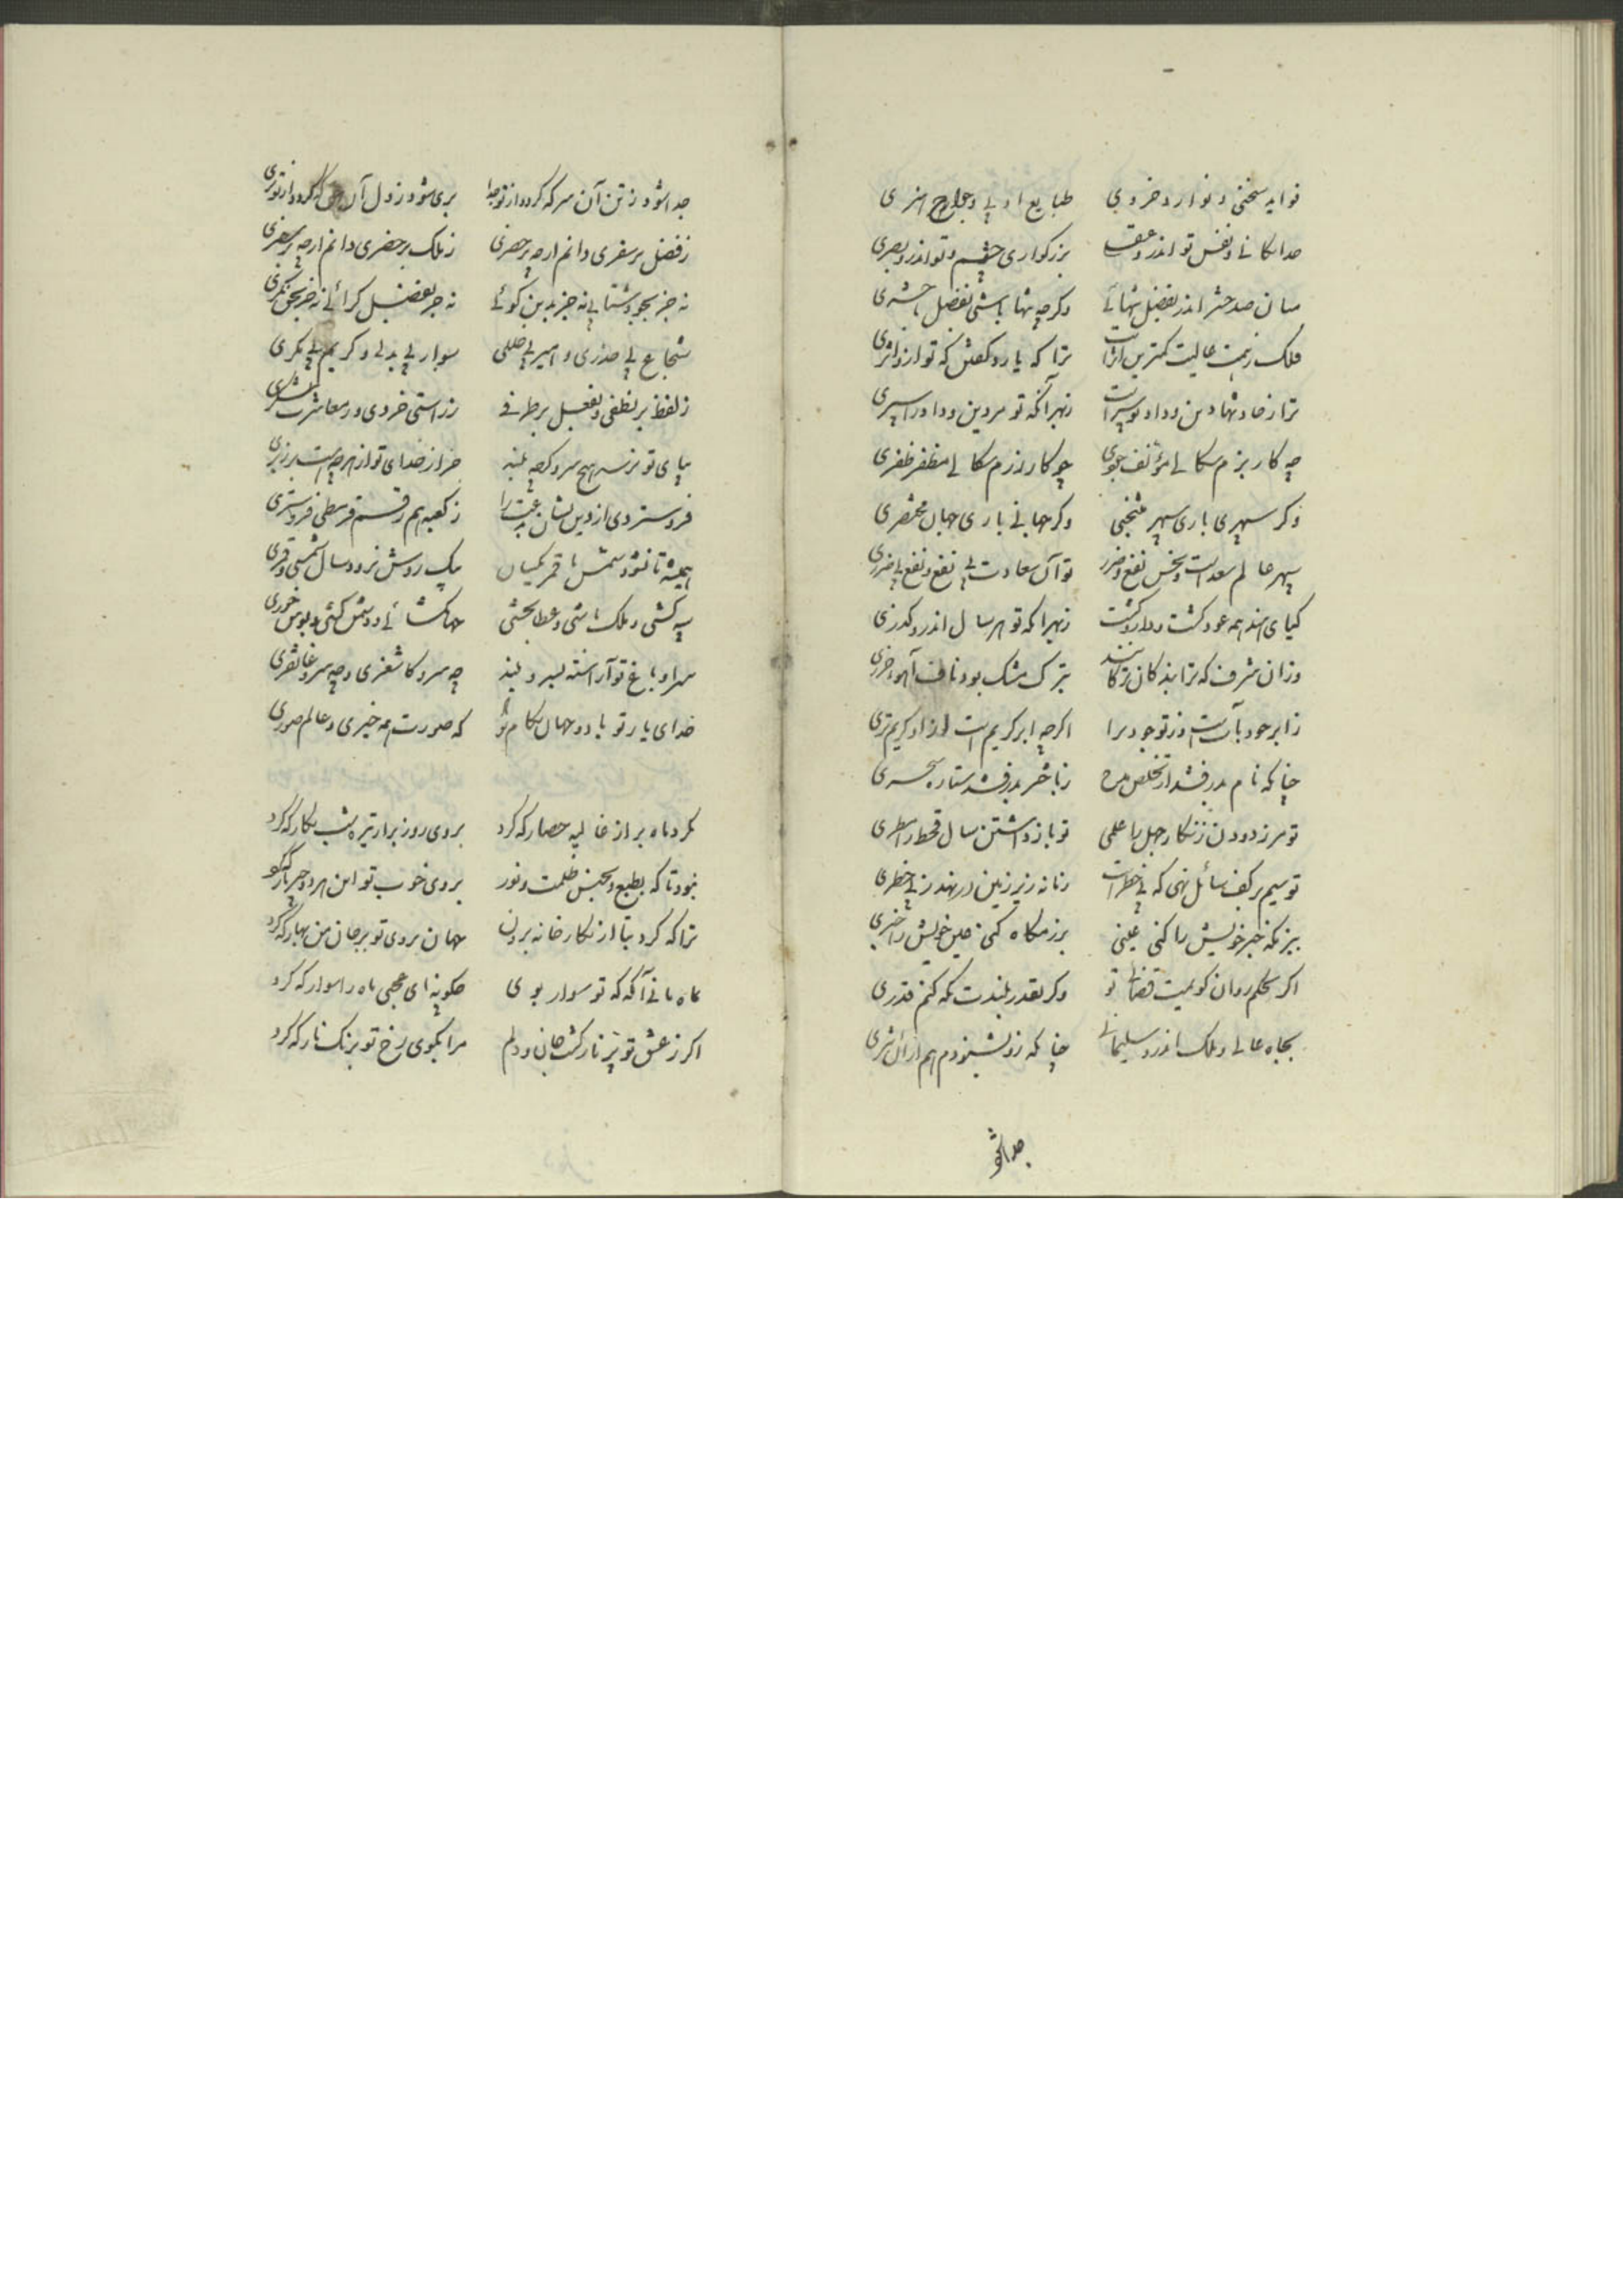 نوایه سخنی و نوادر و خردی طبایع ادبی و جوارح هنری
خدایگانی و نفس تو اندرو عقل بزرگواری چشم و تو اندرو بصری
میان صد حشر اندر بفضل تنهائی وکرچه تنها باشی بفضل حشری
فلک ز همت عالیت کمترین اثر است ترا که یارد کفتن که تو ازو اثری
ترا ز خاد و
چه کار بزم سکالی مؤلف جودی چو کار رزم سکالی مظفر ظفری
وکر سپهری باری سپهر منتخبی وکر جهانی باری جهان مختصری
سپهر عالم سعد است و نحس نفع و ضرر تو آن سعادت بی نحس و نفع بی ضرری
کیای هند همه عود کشت زیرا که تو هر سال اندرو کذری
وزان شرف که ترا بندکان ترکانند بترک مشک بود ناف آهو خزری
ز ابر جود بآبست وز تو جود برا اکرچه ابر کریم است ازو کریم تری
چنانکه نام بدرفشد از تخلص مدح ز باختر بدرفشد ستاره سحری
تو مر زدودن زنکار جهل را علمی تو باز داشتن سال قحط را مطری
تو سیم بر کف سائل نهی که بی خطر است زنانه زیر زمین در نهند زر خطری
ببزمکه خبر خویش را کنی عینی برزمکاه کنی عین خویش را خبری
اکر بحکم روان کویمت قضائی تو وکر بقدر بلندت نکه کنم قدری
بجاه عالی و ملک اندرو سلیمانی چنانکه زو بشنودم هم از آن شری
جدا شو
جدا شود ز تن آن سر که کردد از تو جدا بری شود ز دل آن کس که کردد از تو بری
ز فضل بر سفری دانم ارچه بر حضری ز ملک بر حضری دانم ارچه بر سفری
نه جز بجود شتابی نه جز بدین کوئی نه جز بفضل کرائی نه جز بحق نکری
شجاع بی حذری و امیر بی خللی سوار بی بدلی و کریم بی مکری
ز لفظ بر لطفی و بفعل بر طرفی ز راستی خردی و معاشرت
بپای تو نرسد هیچ سر وکرچه بلند جز از خدای تو از هرچه هست برزبری
فرو ستردی از دین نشان بدعت را ز کعبه هم رقم قرمطی فرو ستری
همیشه تا نشود شمس با قمر یکسان بیک روش نرود سال شمسی و قمری
سپه کشی و ملک باشی و عطا بخشی جهان کشائی و دشمن کشی و نوش خوری
سرا و باغ تو آراسته بسرو بلند چه سرو کاشغری و چه سرو غاتفری
خدای یار تو باد و جهان بکام تو که صورت همه خیری و عالم صوری
بکرد ماه بر از غالیه حصار که کرد بروی روز بر از تیره شب نکار که کرد
نبود تا که بطبع و بجنس ظلمت و نور بروی خوب تو این هر دو چیز یار که کرد
ترا که کرد بتا از نکارخانه برون جهان بروی تو بر جان من بهار که کرد
بماه مانی آنکه که تو سوار بوی چکونه ای عجبی ماه را سوار که کرد
اکر ز عشق تو پر نار کشت جان و دلم مرا بکوی رخ تو برنک نار که کرد